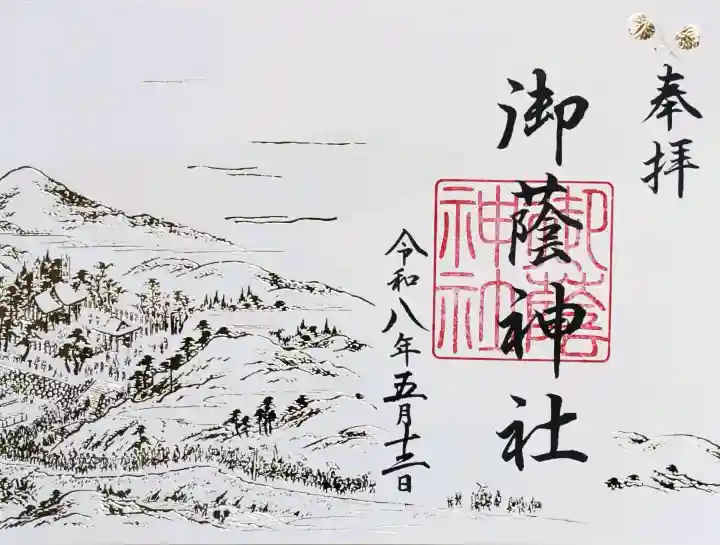 奉拝
御蔭神社
御蔭神社
令和八年五月十二日